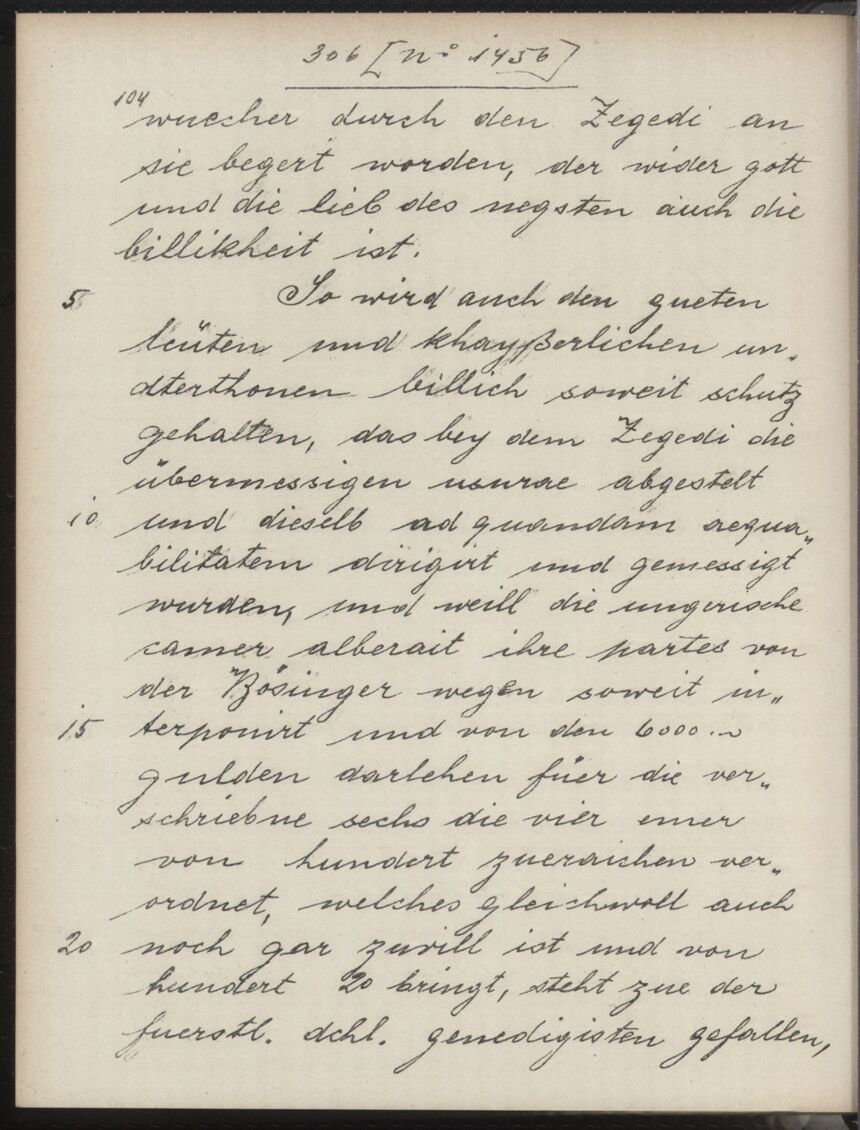 306 [nº 1456]
104
wuecher durch den Zegedi an
sie begert worden, der wider gott
und die lieb des negsten auch die
billikheit ist.
5 So wird auch den gueten
leüten und khayßerlichen un„
dterthonen billich soweit schutz
gehalten, das bey dem Zegedi die
übermessigen usurae abgestelt
10 und dieselb ad quandam aequa„
bilitatem dirigirt und gemessigt
wurden, und weill die ungerische
camer alberait ihre partes von
der Bösinger wegen soweit in„
15 terponirt und von den 6000.
gulden darlehen füer die ver„
schriebne sechs die vier emer
von hundert zueraichen ver„
ordnet, welches gleichwoll auch
20 noch gar zuvill ist und von
hundert 20 bringt, steht zue der
fuerstl. dchl. genedigisten gefallen,